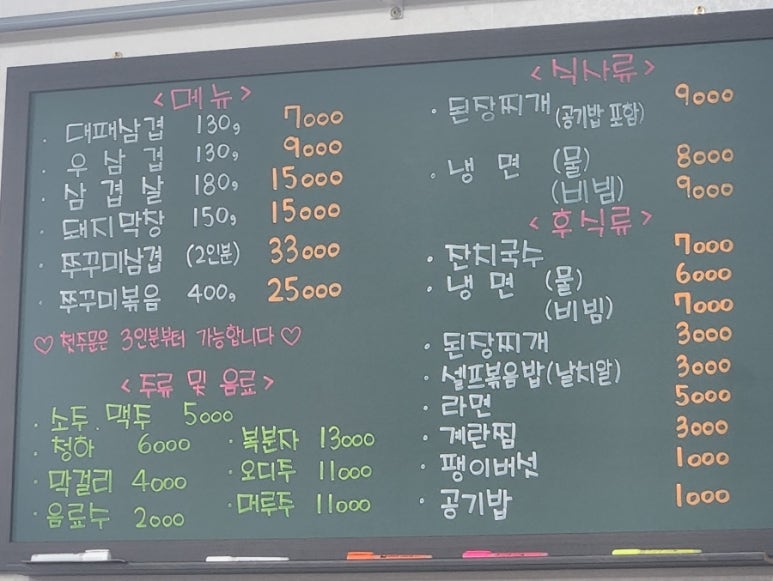 <메뉴>
· 대패삼겹 130g 7000
· 우삼겹 130g 9000
· 삼겹살 180g 15000
· 돼지막창 150g 15000
· 쭈꾸미삼겹 (2인분) 33000
· 쭈꾸미볶음 400g 25000
♡ 첫주문은 3인분부터 가능합니다 ♡
<주류 및 음료>
· 소주. 맥주 5000
· 청하 6000
· 막걸리 4000
· 음료수 2000
· 복분자 13000
· 오디주 11000
· 머루주 11000
<식사류>
· 된장찌개 (공기밥 포함) 9000
· 냉면 (물) 8000
(비빔) 9000
<후식류>
· 잔치국수 7000
· 냉면 (물) 6000
(비빔) 7000
· 된장찌개 3000
· 셀프볶음밥(날치알) 3000
· 라면 5000
· 계란찜 3000
· 팽이버섯 1000
· 공기밥 1000